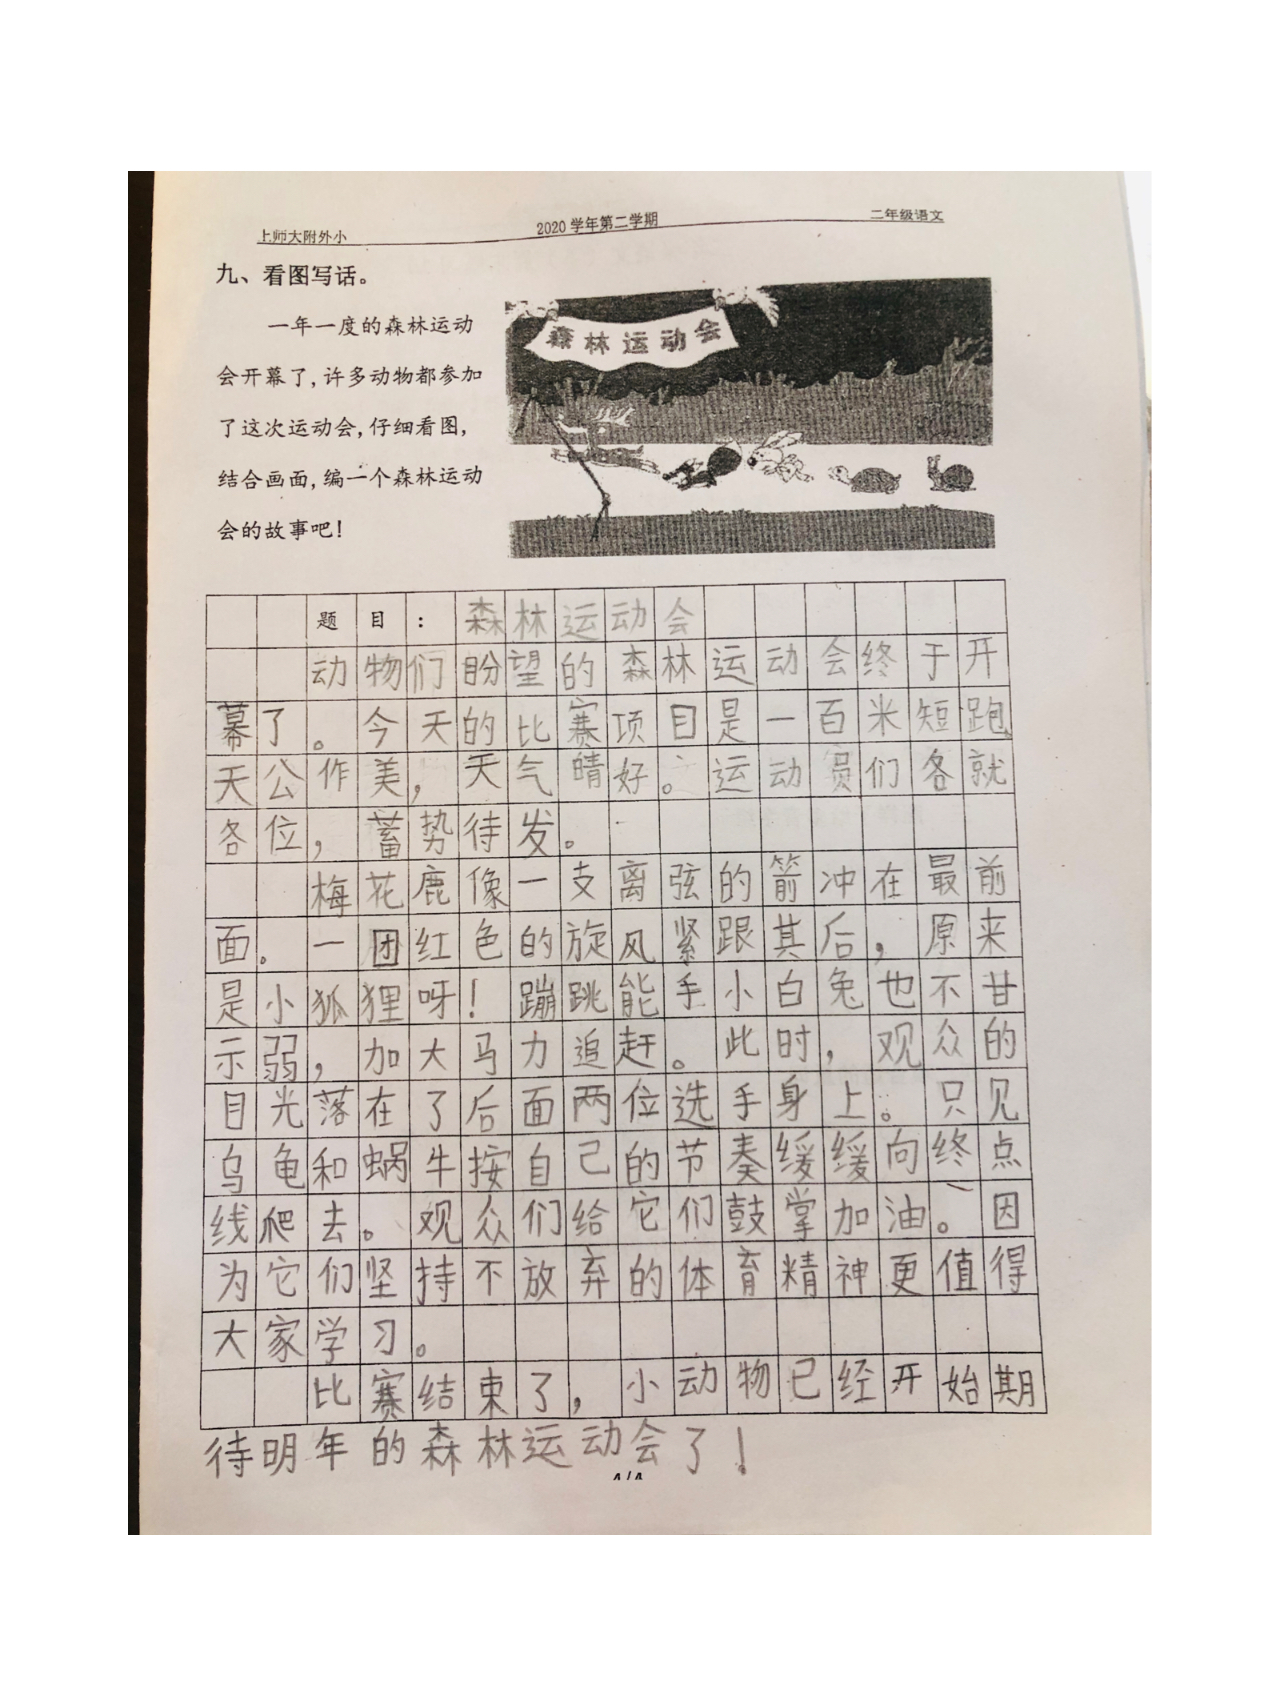 上师大附外小 2020学年第二学期 二年级语文
九、看图写话。
一年一度的森林运动
会开幕了,许多动物都参加
了这次运动会,仔细看图,
结合画面,编一个森林运动
会的故事吧!
森林运动会
题目:森林运动会
动物们盼望的森林运动会终于开
幕了。今天的比赛项目是一百米短跑。
天公作美,天气晴好。运动员们各就
各位,蓄势待发。
梅花鹿像一支离弦的箭冲在最前
面。一团红色的旋风紧跟其后,原来
是小狐狸呀!蹦跳能手小白兔也不甘
示弱,加大马力追赶。此时,观众的
目光落在了后面两位选手身上。只见
乌龟和蜗牛按自己的节奏缓缓向终点
线爬去。观众们给它们鼓掌加油。因
为它们坚持不放弃的体育精神更值得
大家学习。
比赛结束了,小动物已经开始期
待明年的森林运动会了!
4/4